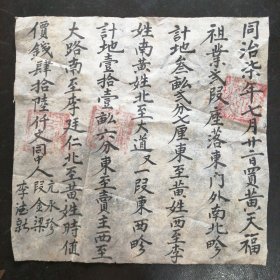 同治柒年七月廿一日買黃天福
祖業弍段座落東門外南北畛
計地叁畝弍分七厘東至黃姓西至李
姓南黃姓北至大道又一段東西畛
計地壹拾壹畝六分東至賣主西至
大路南至李廷仁北至黃姓時值
價錢肆拾陸仟文同中人
元永珍
段金梁
李